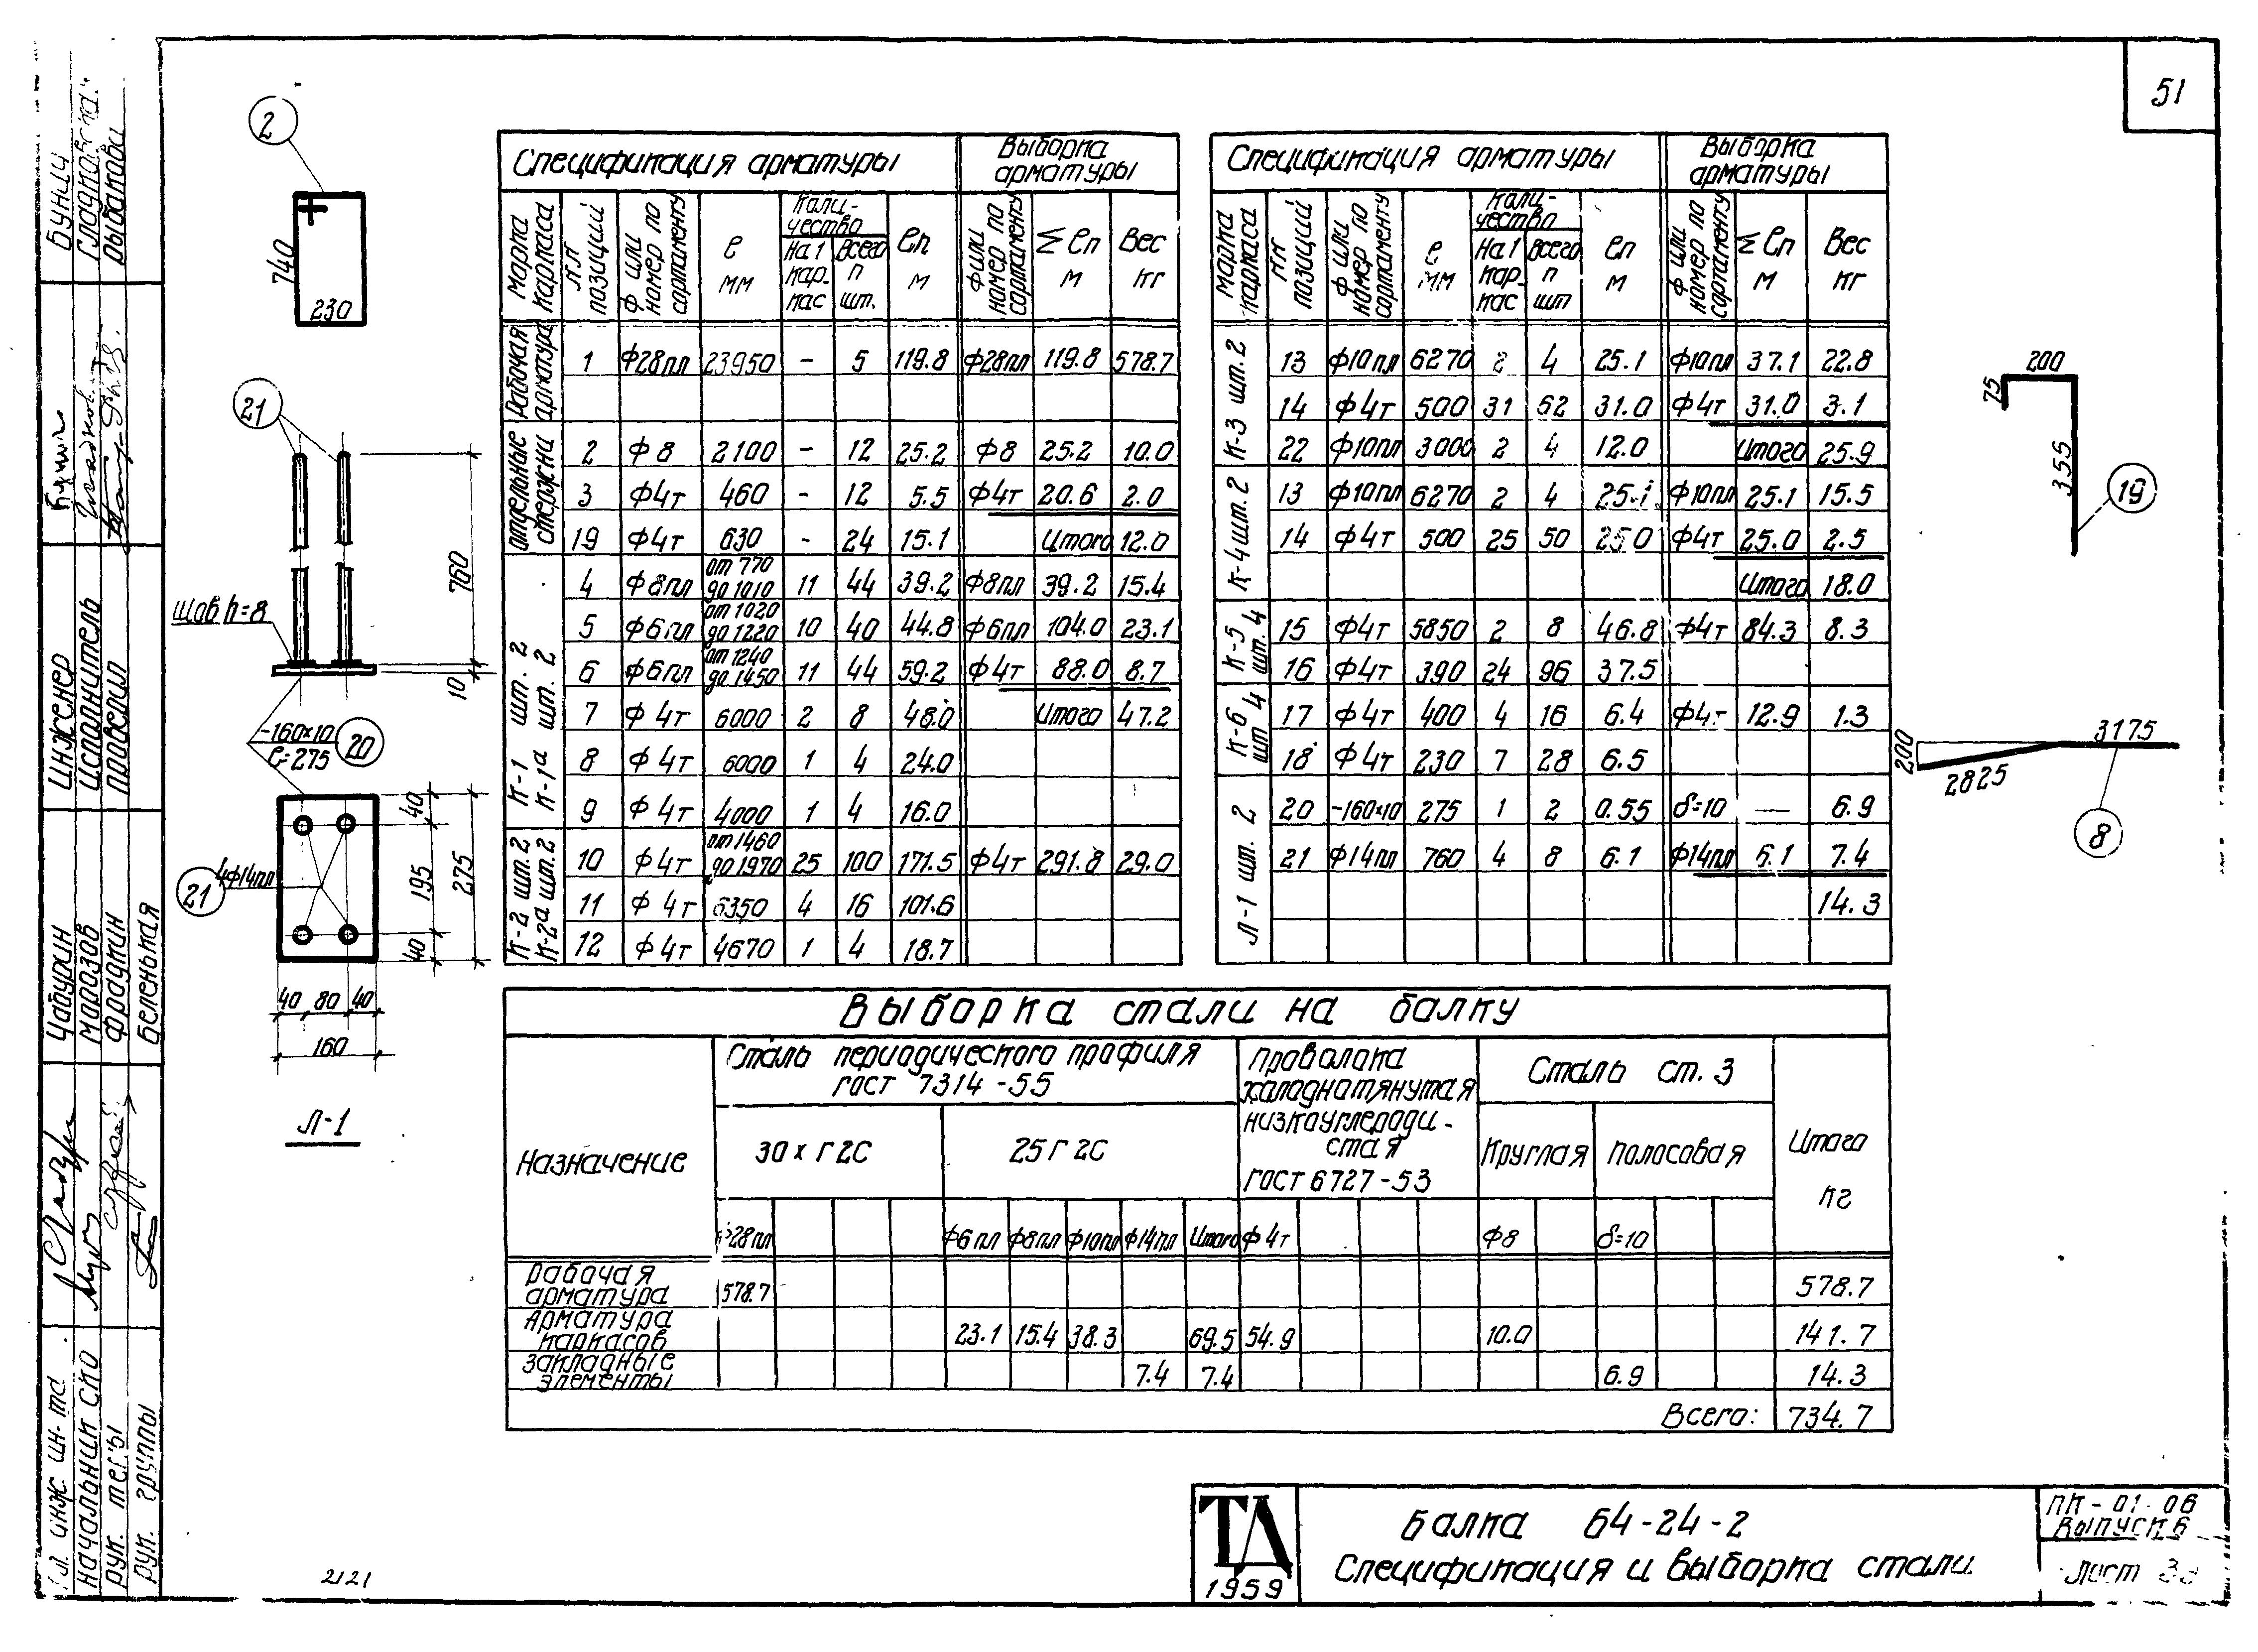 51
2
740
230
21
760
10
шов h=8
-160×10
ℓ=275
20
40
195
275
40
4ф14пл
21
40 80 40
160
Л-1
Спецификация арматуры | Выборка арматуры
Марка каркаса | NN позиций | ф или номер по сортаменту | ℓ мм | Количество | ℓп м | ф или номер по сортаменту | Σℓп м | Вес кг
На 1 каркас | Всего п шт.
Рабочая арматура
1 | ф28пл | 23950 | - | 5 | 119.8 | ф28пл | 119.8 | 578.7
Отдельные стержни
2 | ф8 | 2100 | - | 12 | 25.2 | ф8 | 25.2 | 10.0
3 | ф4т | 460 | - | 12 | 5.5 | ф4т | 20.6 | 2.0
19 | ф4т | 630 | - | 24 | 15.1 | Итого | 12.0
К-1 шт. 2
К-1а шт. 2
4 | ф8пл | от 770 до 1010 | 11 | 44 | 39.2 | ф8пл | 39.2 | 15.4
5 | ф6пл | от 1020 до 1220 | 10 | 40 | 44.8 | ф6пл | 104.0 | 23.1
6 | ф6пл | от 1240 до 1450 | 11 | 44 | 59.2 | ф4т | 88.0 | 8.7
7 | ф4т | 6000 | 2 | 8 | 48.0 | Итого | 47.2
8 | ф4т | 6000 | 1 | 4 | 24.0
9 | ф4т | 4000 | 1 | 4 | 16.0
К-2 шт. 2
К-2а шт. 2
10 | ф4т | от 1460 до 1970 | 25 | 100 | 171.5 | ф4т | 291.8 | 29.0
11 | ф4т | 6350 | 4 | 16 | 101.6
12 | ф4т | 4670 | 1 | 4 | 18.7
Спецификация арматуры | Выборка арматуры
Марка каркаса | NN позиций | ф или номер по сортаменту | ℓ мм | Количество | ℓп м | ф или номер по сортаменту | Σℓп м | Вес кг
На 1 каркас | Всего п шт
К-3 шт. 2
13 | ф10пл | 6270 | 2 | 4 | 25.1 | ф10пл | 37.1 | 22.8
14 | ф4т | 500 | 31 | 62 | 31.0 | ф4т | 31.0 | 3.1
22 | ф10пл | 3000 | 2 | 4 | 12.0 | Итого | 25.9
К-4 шт. 2
13 | ф10пл | 6270 | 2 | 4 | 25.1 | ф10пл | 25.1 | 15.5
14 | ф4т | 500 | 25 | 50 | 25.0 | ф4т | 25.0 | 2.5
Итого | 18.0
К-5 шт. 4
15 | ф4т | 5850 | 2 | 8 | 46.8 | ф4т | 84.3 | 8.3
16 | ф4т | 390 | 24 | 96 | 37.5
К-6 шт 4
17 | ф4т | 400 | 4 | 16 | 6.4 | ф4т | 12.9 | 1.3
18 | ф4т | 230 | 7 | 28 | 6.5
Л-1 шт. 2
20 | -160×10 | 275 | 1 | 2 | 0.55 | δ=10 | — | 6.9
21 | ф14пл | 760 | 4 | 8 | 6.1 | ф14пл | 6.1 | 7.4
14.3
200
75
355
19
200
2825
3175
8
Выборка стали на балку
Назначение | Сталь периодического профиля ГОСТ 7314-55 | Проволока холоднотянутая низкоуглеродистая ГОСТ 6727-53 | Сталь ст. 3 | Итого кг
30хГ2С | 25Г2С | Круглая | Полосовая
ф28пл | ф6пл | ф8пл | ф10пл | ф14пл | Итого | ф4т | ф8 | δ=10
Рабочая арматура | 578.7 | 578.7
Арматура каркасов | 23.1 | 15.4 | 38.3 | 69.5 | 54.9 | 10.0 | 141.7
Закладные элементы | 7.4 | 7.4 | 6.9 | 14.3
Всего: 734.7
ТА
1959
Балка Б4-24-2
Спецификация и выборка стали
ПК-01-06
Выпуск 6
Лист
2121
Инженер
Исполнитель
Проверил
Цабурин
Морозов
Фрадкин
Беленькая
Гл. инж. ин-та
Начальник СКО
Рук. группы